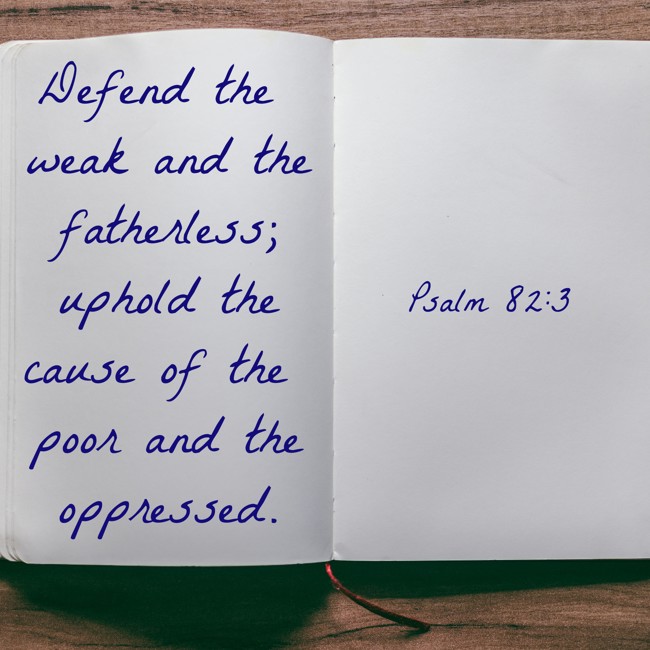 Defend the
weak and the
fatherless;
uphold the
cause of the
poor and the
oppressed.
Psalm 82:3